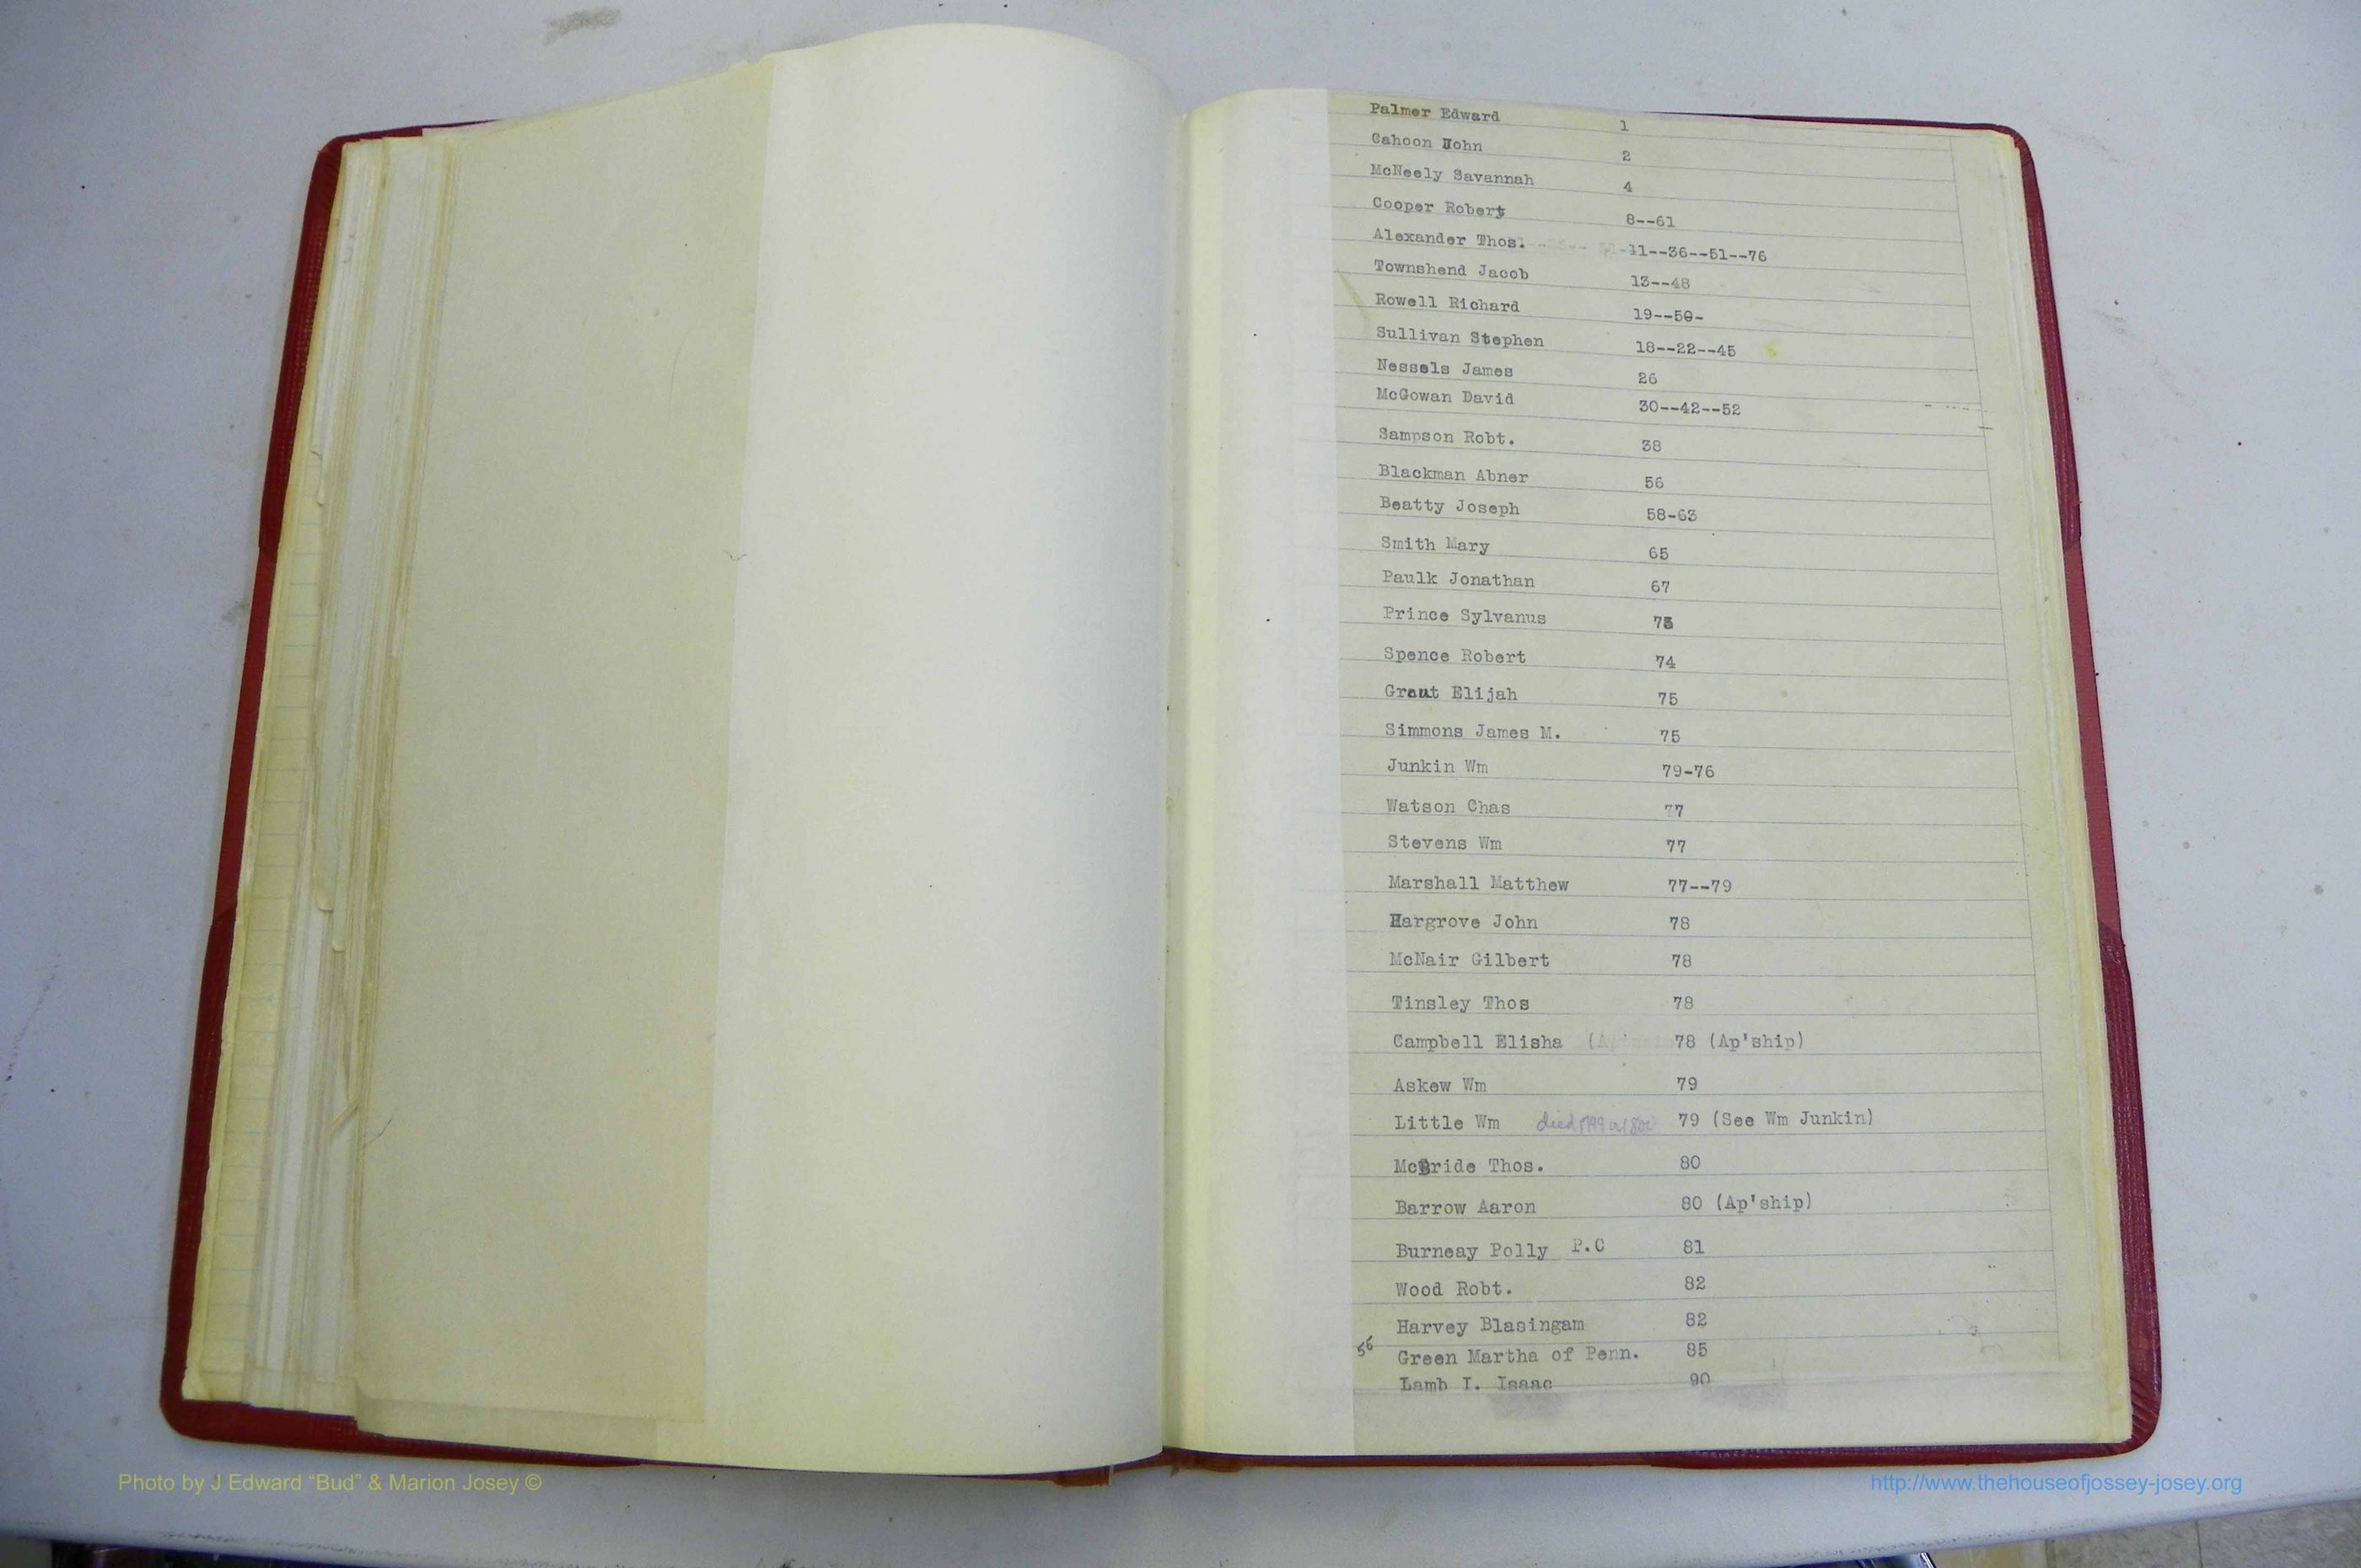 Palmer Edward 1
Cahoon John 2
McNeely Savannah 4
Cooper Robert 8--61
Alexander Thos. 11--36--51--76
Townshend Jacob 13--48
Rowell Richard 19--50-
Sullivan Stephen 18--22--45
Nessels James 26
McGowan David 30--42--52
Sampson Robt. 38
Blackman Abner 56
Beatty Joseph 58-63
Smith Mary 65
Paulk Jonathan 67
Prince Sylvanus 73
Spence Robert 74
Graut Elijah 75
Simmons James M. 75
Junkin Wm 79-76
Watson Chas 77
Stevens Wm 77
Marshall Matthew 77--79
Hargrove John 78
McNair Gilbert 78
Tinsley Thos 78
Campbell Elisha 78 (Ap'ship)
Askew Wm 79
Little Wm died 1799 or 1800 79 (See Wm Junkin)
McBride Thos. 80
Barrow Aaron 80 (Ap'ship)
Burneay Polly P.C 81
Wood Robt. 82
Harvey Blasingam 82
56 Green Martha of Penn. 85
Lamb I. Isaac 90
Photo by J Edward “Bud” & Marion Josey ©
http://www.thehouseofjossey-josey.org